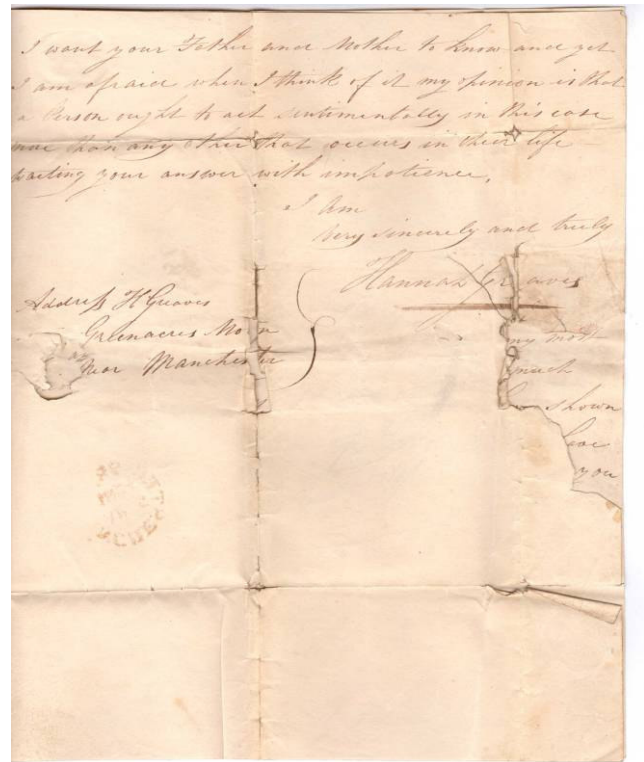 I want your Father and Mother to know and yet
I am afraid when I think of it my opinion is that
a Person ought to act sentimentally in this case
more than any other that occurs in their life
waiting your answer with impatience.
I am
Very sincerely and truly
Hannah Greaves
Address H Greaves
Greenacres Moor
Near Manchester
my most
much
shown
have
you